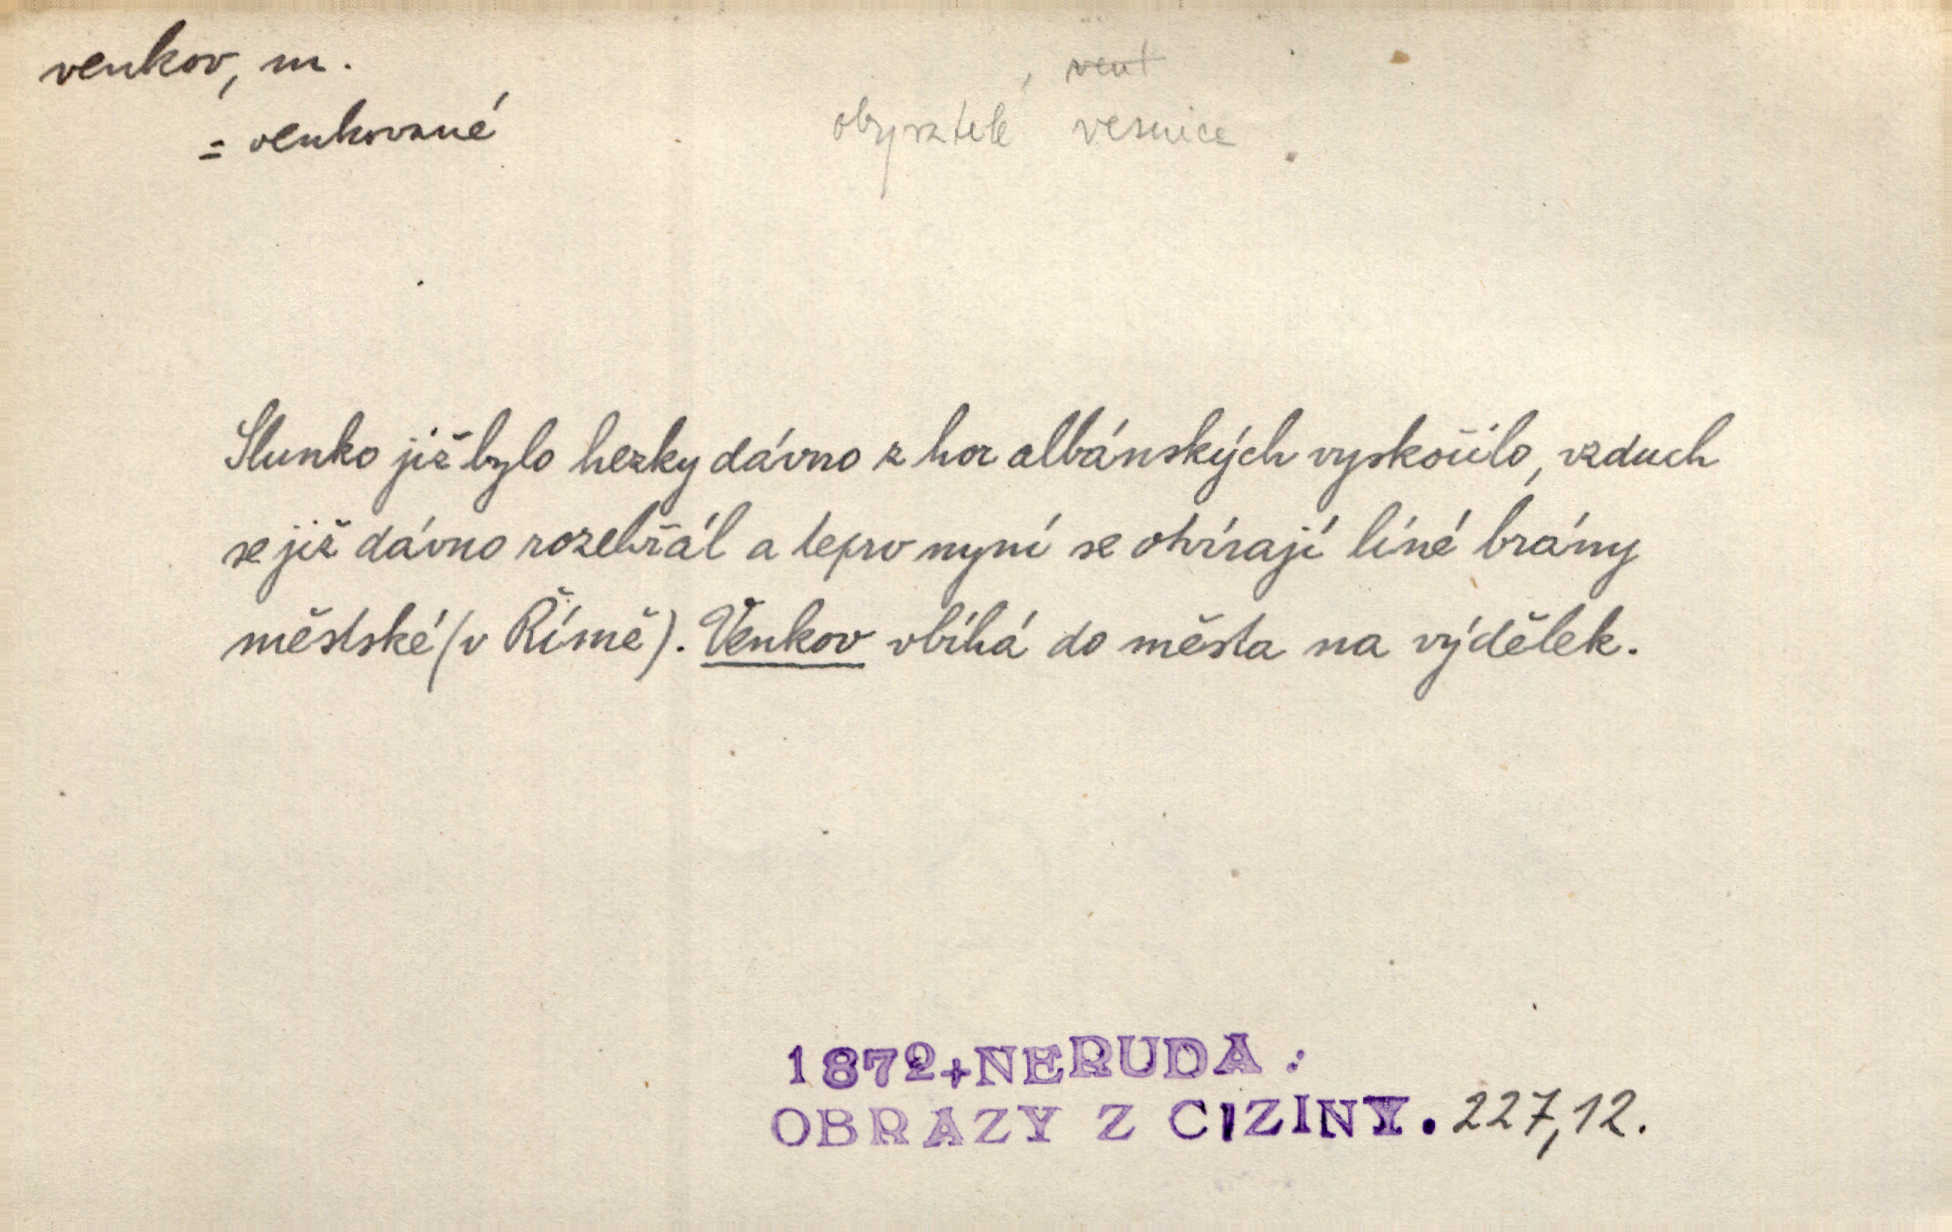 venkov, m.
= venkované
, vent
obyvatelé vesnice
Slunko již bylo hezky dávno z hor albánských vyskočilo, vzduch
se již dávno rozehřál a teprv nyní se otvírají líné brány
městské (v Římě). Venkov vbíhá do města na výdělek.
1872+NERUDA :
OBRAZY Z CIZINY. 227,12.